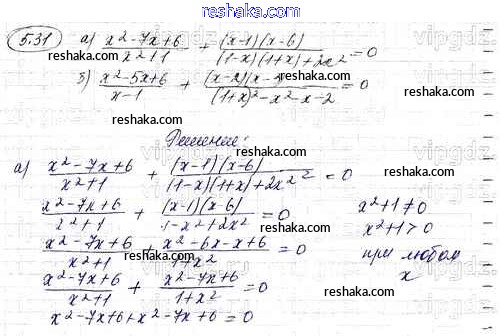 www.reshaka.com
5.31 а) (x²-7x+6)/(x²+1) + ((x-1)(x-6))/((1-x)(1+x)+2x²) = 0
reshaka.com reshaka.com
б) (x²-5x+6)/(x-1) + ((x-2)(x-3))/((1+x)²-x²-x-2) = 0
reshaka.com reshaka.com
Решение:
reshaka.com
а) (x²-7x+6)/(x²+1) + ((x-1)(x-6))/((1-x)(1+x)+2x²) = 0
reshaka.com
(x²-7x+6)/(x²+1) + ((x-1)(x-6))/(1-x²+2x²) = 0 x²+1≠0
reshaka.com x²+1>0
(x²-7x+6)/(x²+1) + (x²-6x-x+6)/(1+x²) = 0 при любом
reshaka.com x
(x²-7x+6)/(x²+1) + (x²-7x+6)/(1+x²) = 0
reshaka.com
x²-7x+6+x²-7x+6=0